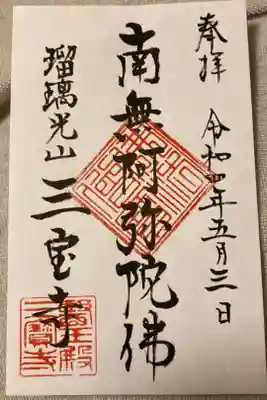 奉拝 令和四年五月三日
南無阿弥陀佛
瑠璃光山 三宝寺